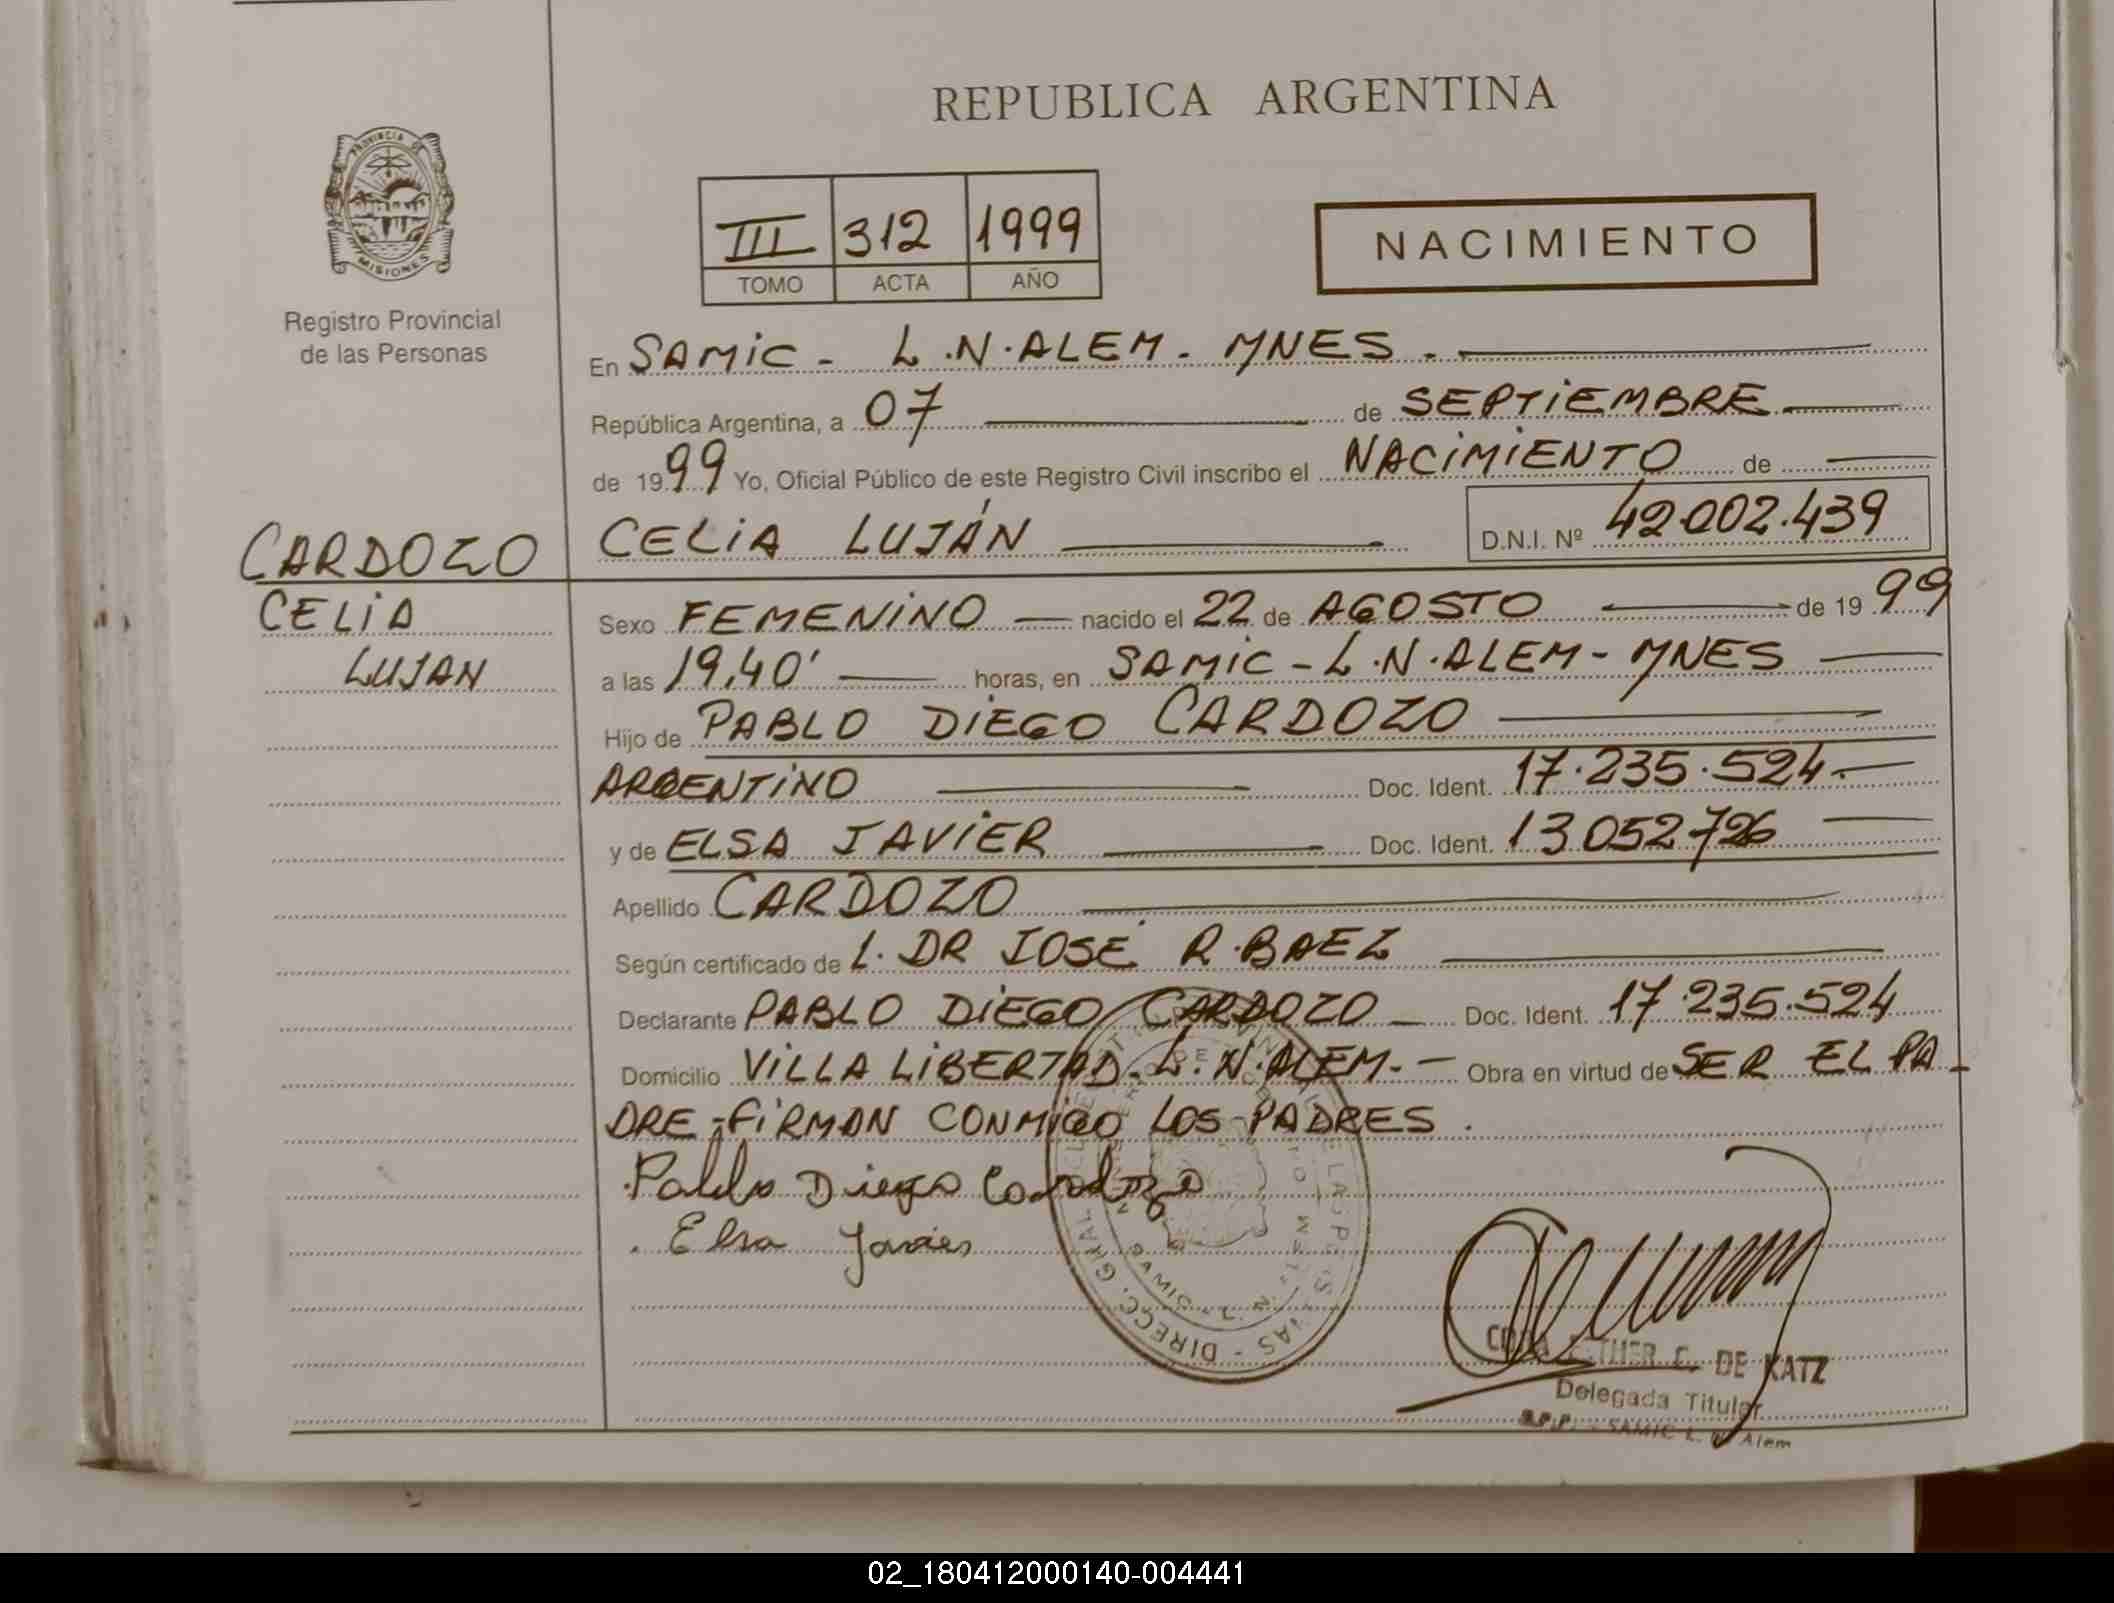 REPUBLICA ARGENTINA
PROVINCIA DE
MISIONES
Registro Provincial
de las Personas
III 312 1999
TOMO ACTA AÑO
NACIMIENTO
En SAMIC - L.N.ALEM - MNES.
República Argentina, a 07 de SEPTIEMBRE
de 1999 Yo, Oficial Público de este Registro Civil inscribo el NACIMIENTO de
CELIA LUJÁN D.N.I. Nº 42.002.439
CARDOZO
CELIA
LUJAN
Sexo FEMENINO nacido el 22 de AGOSTO de 1999
a las 19,40' horas, en SAMIC - L.N.ALEM - MNES
Hijo de PABLO DIEGO CARDOZO
ARGENTINO Doc. Ident. 17.235.524.
y de ELSA JAVIER Doc. Ident. 13.052726
Apellido CARDOZO
Según certificado de L. DR JOSÉ R. BAEZ
Declarante PABLO DIEGO CARDOZO Doc. Ident. 17.235.524
Domicilio VILLA LIBERTAD - L.N.ALEM.- Obra en virtud de SER EL PA-
DRE - FIRMAN CONMIGO LOS PADRES.
Pablo Diego Cardozo
Elsa Javier
DE KATZ
Delegada Titular
R.P.P. - SAMIC L. N. Alem
02_180412000140-004441